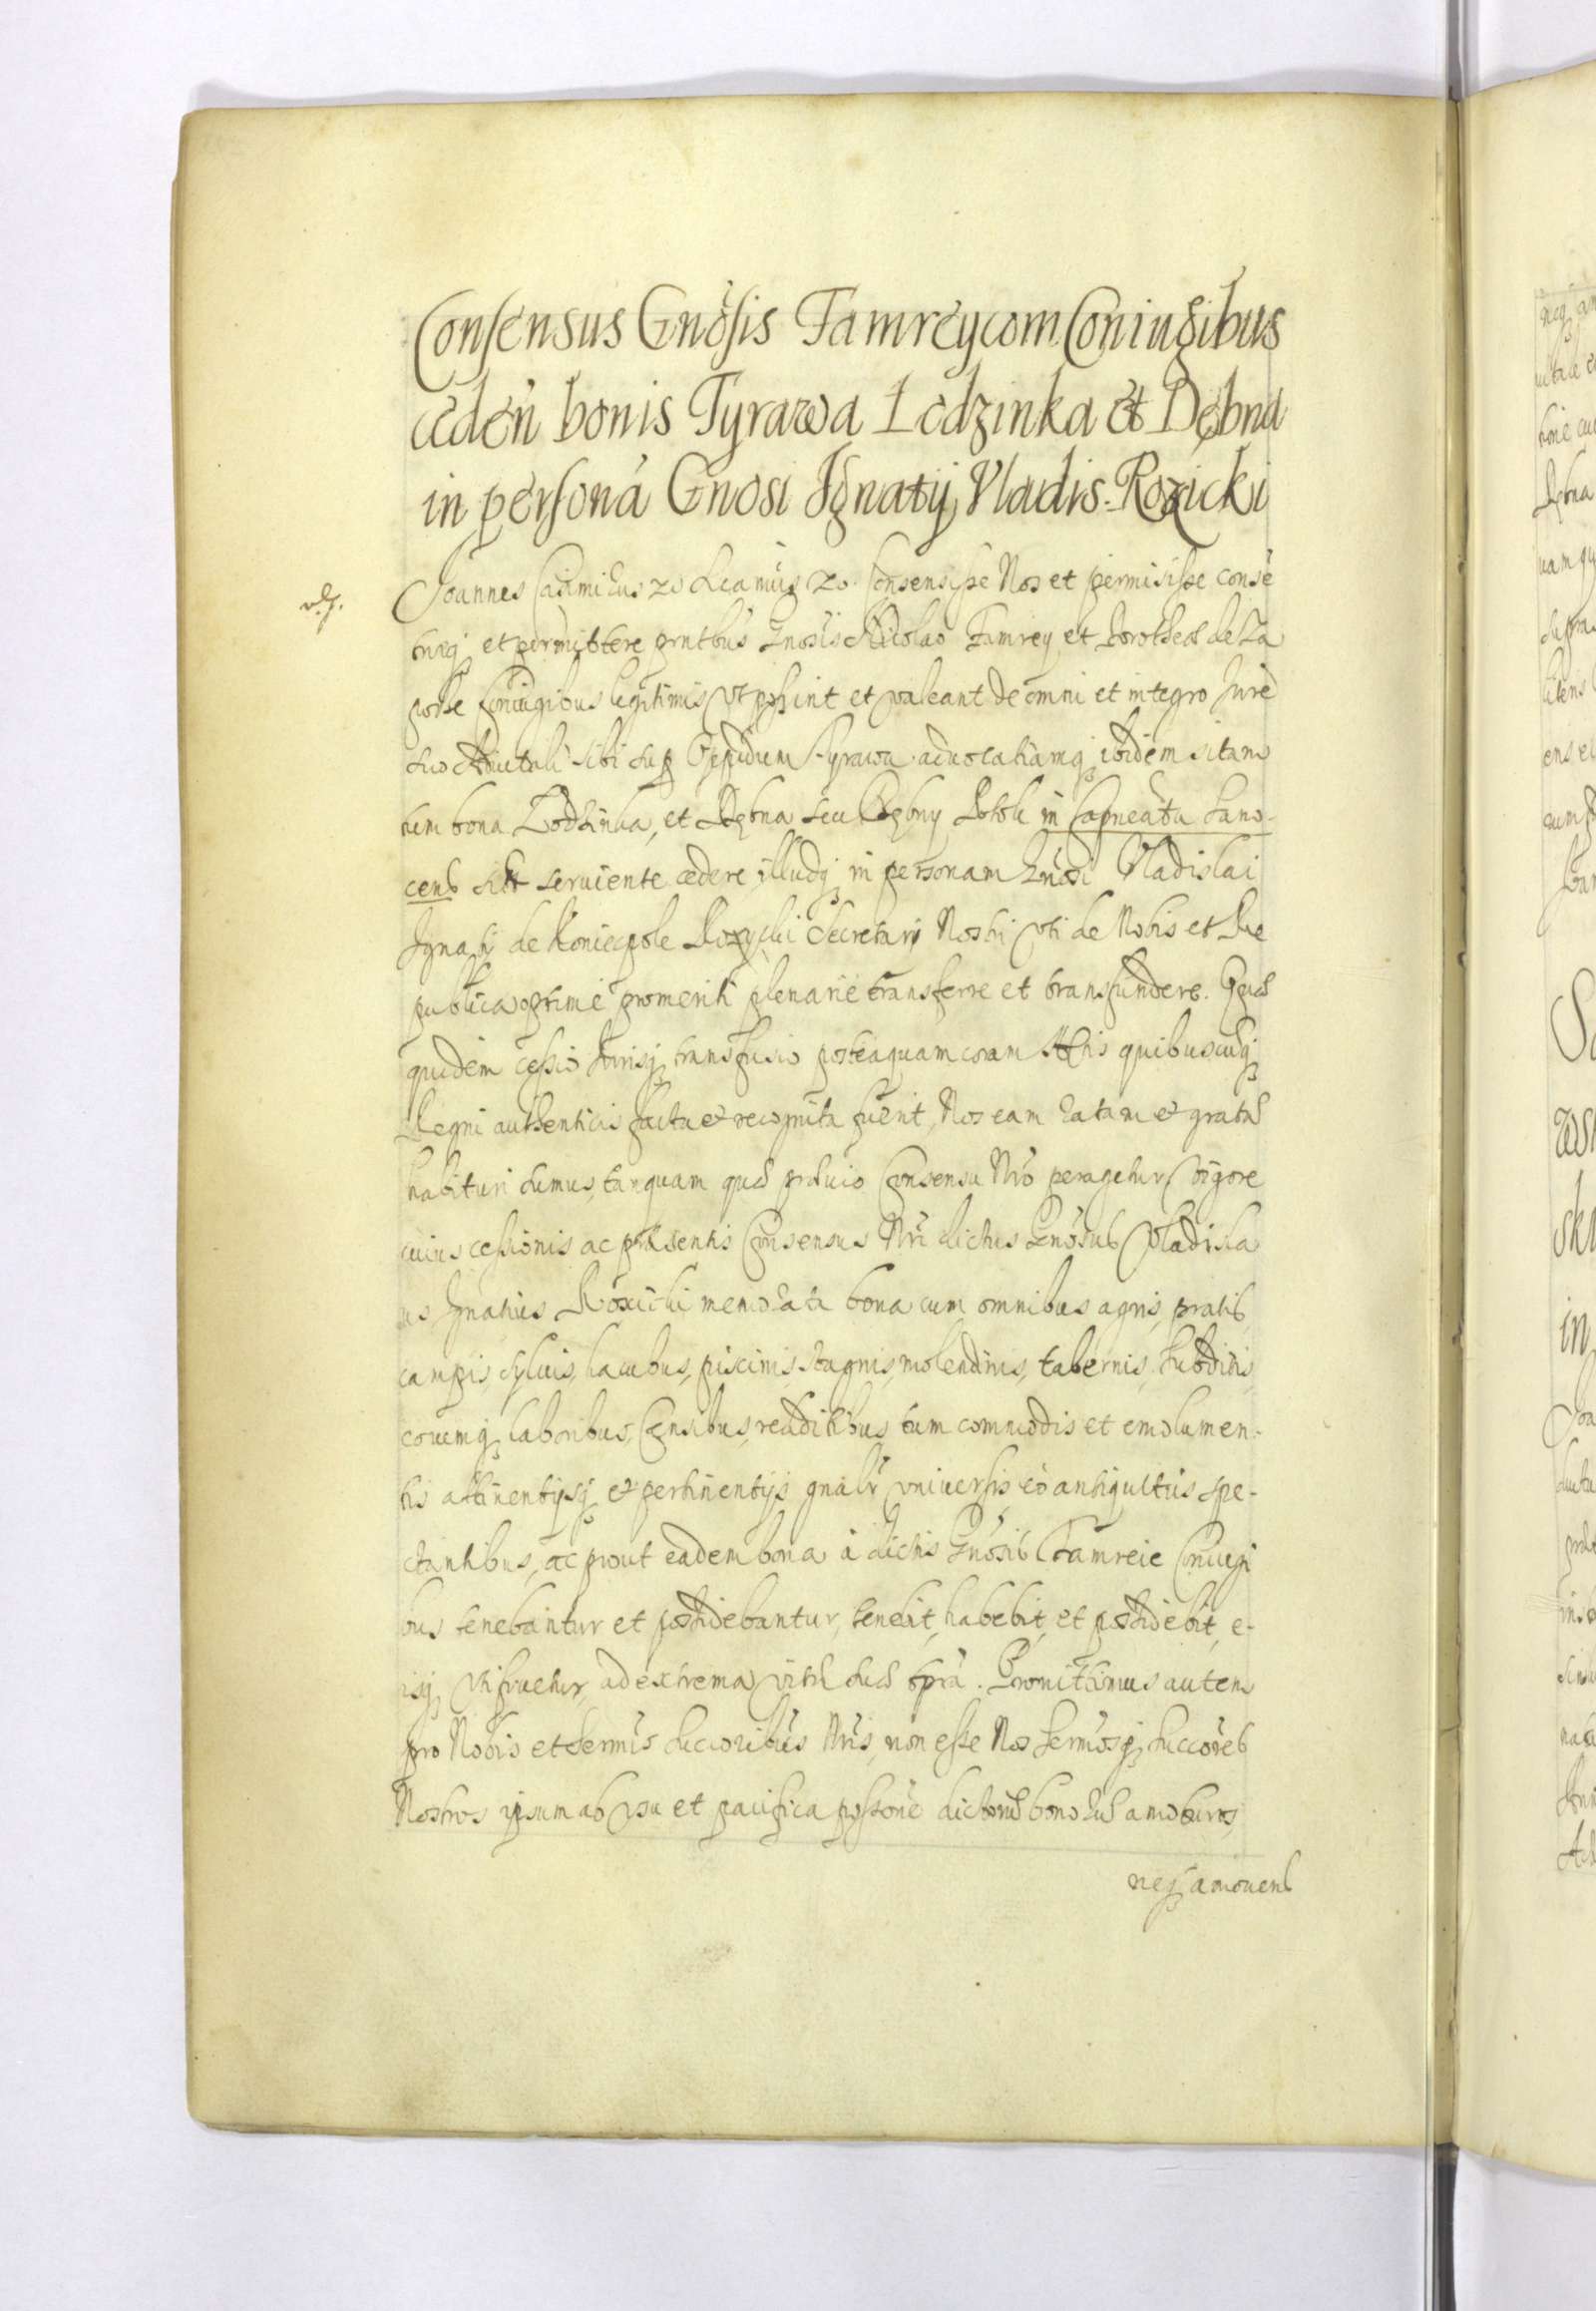 Consensus Gnosis Tamreycom Coniugibus
cedeñ bonis Tyrawa Lodzinka et Dębna
in personã Gnosi Ignatij Vladis. Rozicki
Joannes Casimirus zc Sc. Consensisse Nos et permisisse conse
tireq; et permittere pntbus Gnosis Nicolao Tamrey et Dorotheæ de Za
porse Coniugibus legitimis vt possint et valeant de omni et integro Jure
suo aduitali sibi sup Oppidum Tyrawa aduocatiamq; ibidem sitam
tum bona Lodzinka, et Dębna seu Dębny Potok in Capneatu Sano-
cens seruiente cedere, illudq; in personam Gnosi Vladislai
Ignatij de Koniecpole Rozycki Secretarij Nostri vti de Nobis et Re
publica optime promeriti plenarie transferre et transfundere. Quæ
quidem cessio Jurisq; transfusio posteaquam coram Actis quibuscunq;
Regni authenticis facta et recognita fuerit, Nos eam ratam et gratã
habituri sumus, tanquam quæ præuio Consensu Nro peragetur. Vigore
cuius cessionis ac præsentis Consensus Nri dictus Gnosus Vladisla
us Ignatius Rozicki memorata bona cum omnibus agris, pratis,
campis, syluis, lacubus, piscinis, stagnis, molendinis, tabernis, subditis,
eorumq; laboribus, censibus, reditibus, tum commodis et emolumen-
tis attinentijsq; et pertinentijs gnalr vniuersis eo antiquitus spe-
ctantibus, ac prout eadem bona à dictis Gnosis Tamreie Coniugi
bus tenebantur et possidebantur, tenebit, habebit, et possidebit, e-
isq; vtifruetur, ad extrema vitæ suæ tpra. Promittimus autem
pro Nobis et Sermis Succoribus Nris, non esse Nos Sermosq; Succores
Nostros ipsum ab vsu et pacifica possone dictorũ bonorũ amoturos,
neq; amouend